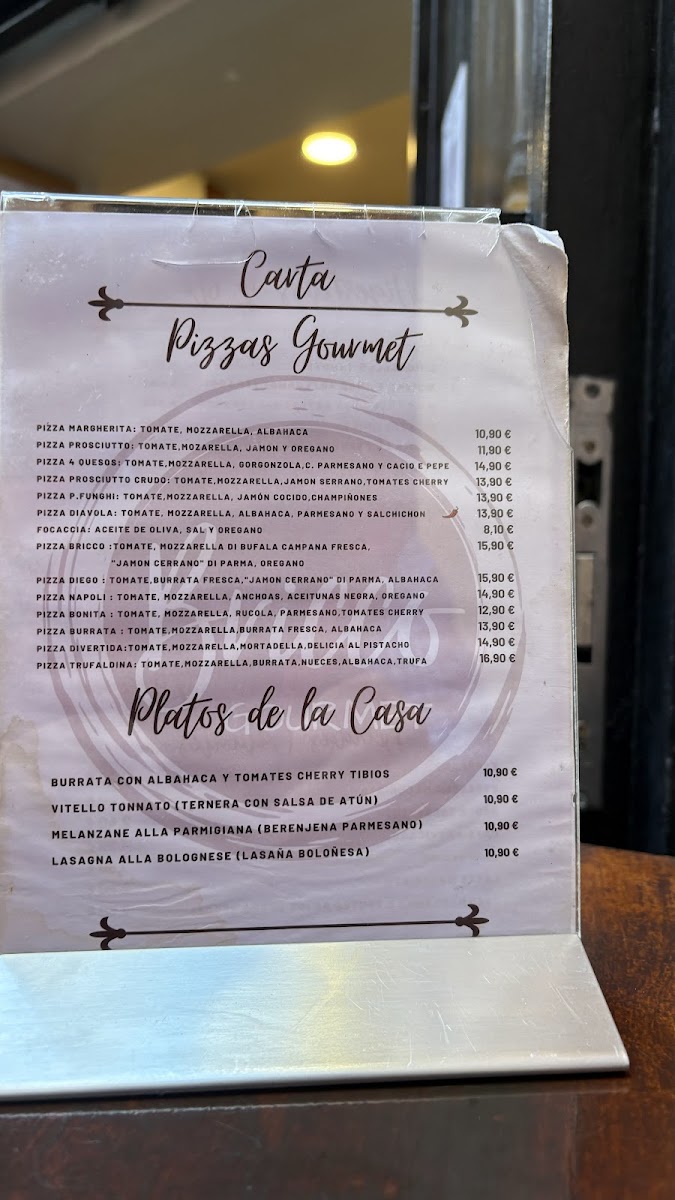 Carta
Pizzas Gourmet
PIZZA MARGHERITA: TOMATE, MOZZARELLA, ALBAHACA 10,90 €
PIZZA PROSCIUTTO: TOMATE,MOZARELLA, JAMON Y OREGANO 11,90 €
PIZZA 4 QUESOS: TOMATE,MOZZARELLA, GORGONZOLA,C. PARMESANO Y CACIO E PEPE 14,90 €
PIZZA PROSCIUTTO CRUDO: TOMATE,MOZZARELLA,JAMON SERRANO,TOMATES CHERRY 13,90 €
PIZZA P.FUNGHI: TOMATE,MOZZARELLA, JAMÓN COCIDO,CHAMPIÑONES 13,90 €
PIZZA DIAVOLA: TOMATE, MOZZARELLA, ALBAHACA, PARMESANO Y SALCHICHON 13,90 €
FOCACCIA: ACEITE DE OLIVA, SAL Y OREGANO 8,10 €
PIZZA BRICCO :TOMATE, MOZZARELLA DI BUFALA CAMPANA FRESCA, 15,90 €
"JAMON CERRANO" DI PARMA, OREGANO
PIZZA DIEGO : TOMATE,BURRATA FRESCA,"JAMON CERRANO" DI PARMA, ALBAHACA 15,90 €
PIZZA NAPOLI : TOMATE, MOZZARELLA, ANCHOAS, ACEITUNAS NEGRA, OREGANO 14,90 €
PIZZA BONITA : TOMATE, MOZZARELLA, RUCOLA, PARMESANO,TOMATES CHERRY 12,90 €
PIZZA BURRATA : TOMATE,MOZZARELLA,BURRATA FRESCA, ALBAHACA 13,90 €
PIZZA DIVERTIDA:TOMATE,MOZZARELLA,MORTADELLA,DELICIA AL PISTACHO 14,90 €
PIZZA TRUFALDINA: TOMATE,MOZZARELLA,BURRATA,NUECES,ALBAHACA,TRUFA 16,90 €
Platos de la Casa
GOURMET
BURRATA CON ALBAHACA Y TOMATES CHERRY TIBIOS 10,90 €
VITELLO TONNATO (TERNERA CON SALSA DE ATÚN) 10,90 €
MELANZANE ALLA PARMIGIANA (BERENJENA PARMESANO) 10,90 €
LASAGNA ALLA BOLOGNESE (LASAÑA BOLOÑESA) 10,90 €